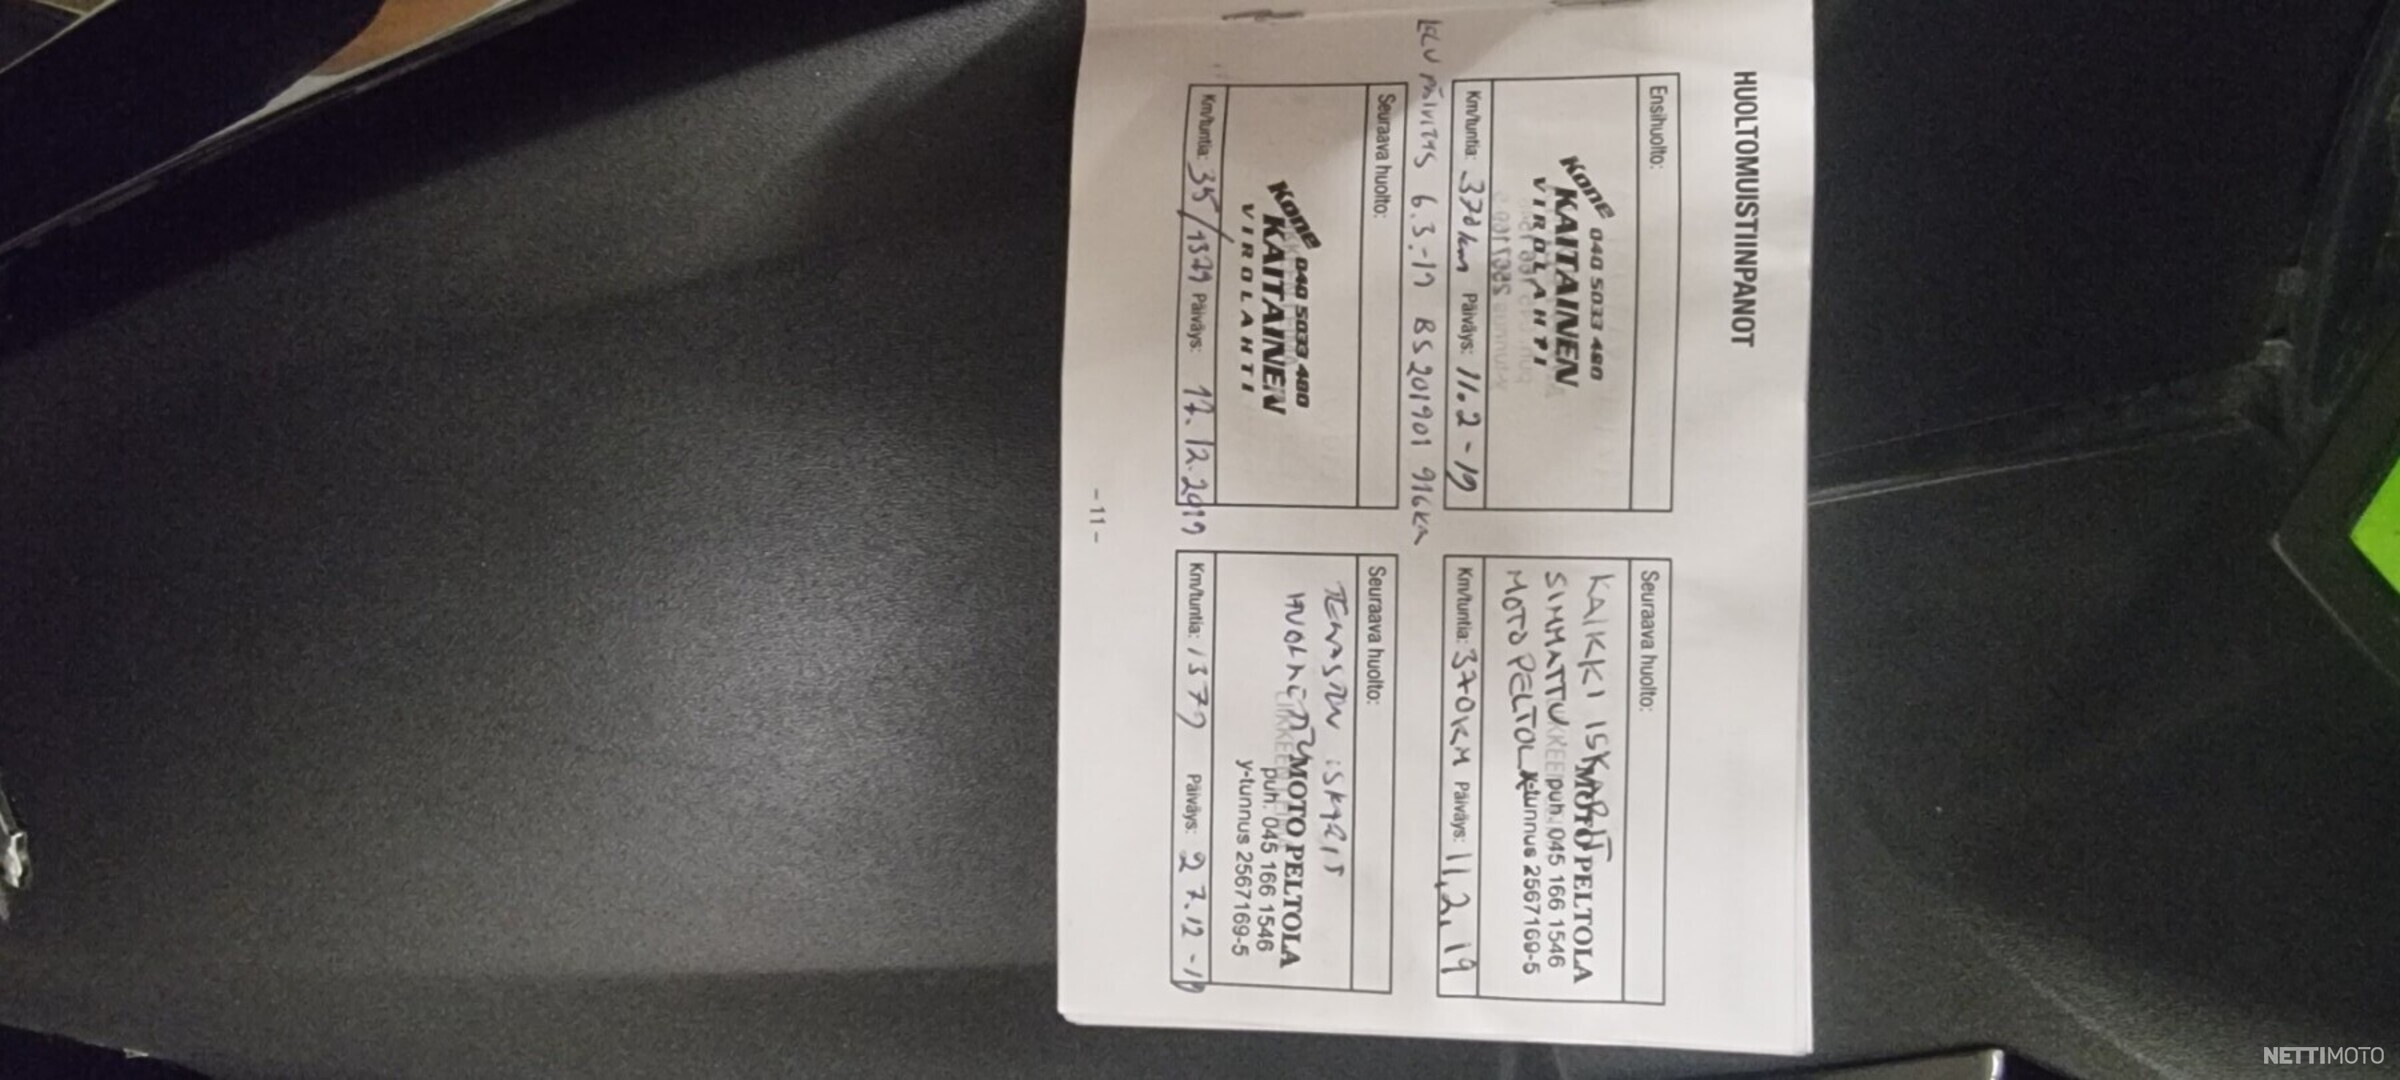 HUOLTOMUISTIINPANOT
Ensihuolto:
Kone 040 5033 480
KAITAINEN
VIROLAHTI
Km/tuntia: 370km Päiväys: 11.2-19
Seuraava huolto:
KAIKKI ISKARIT
SIMMATTU
MOTOPELTOLA
MOTO PELTOLA
puh. 045 166 1546
y-tunnus 2567169-5
Km/tuntia: 370KM Päiväys: 11,2,19
6.3.-19 BS201901 916km
Seuraava huolto:
Kone 040 5033 480
KAITAINEN
VIROLAHTI
Km/tuntia: 35/1379 Päiväys: 17.12.2019
Seuraava huolto:
ISKARIT
HUOLLETTU
MOTO PELTOLA
puh. 045 166 1546
y-tunnus 2567169-5
Km/tuntia: 1379 Päiväys: 27.12-19
- 11 -
NETTIMOTO